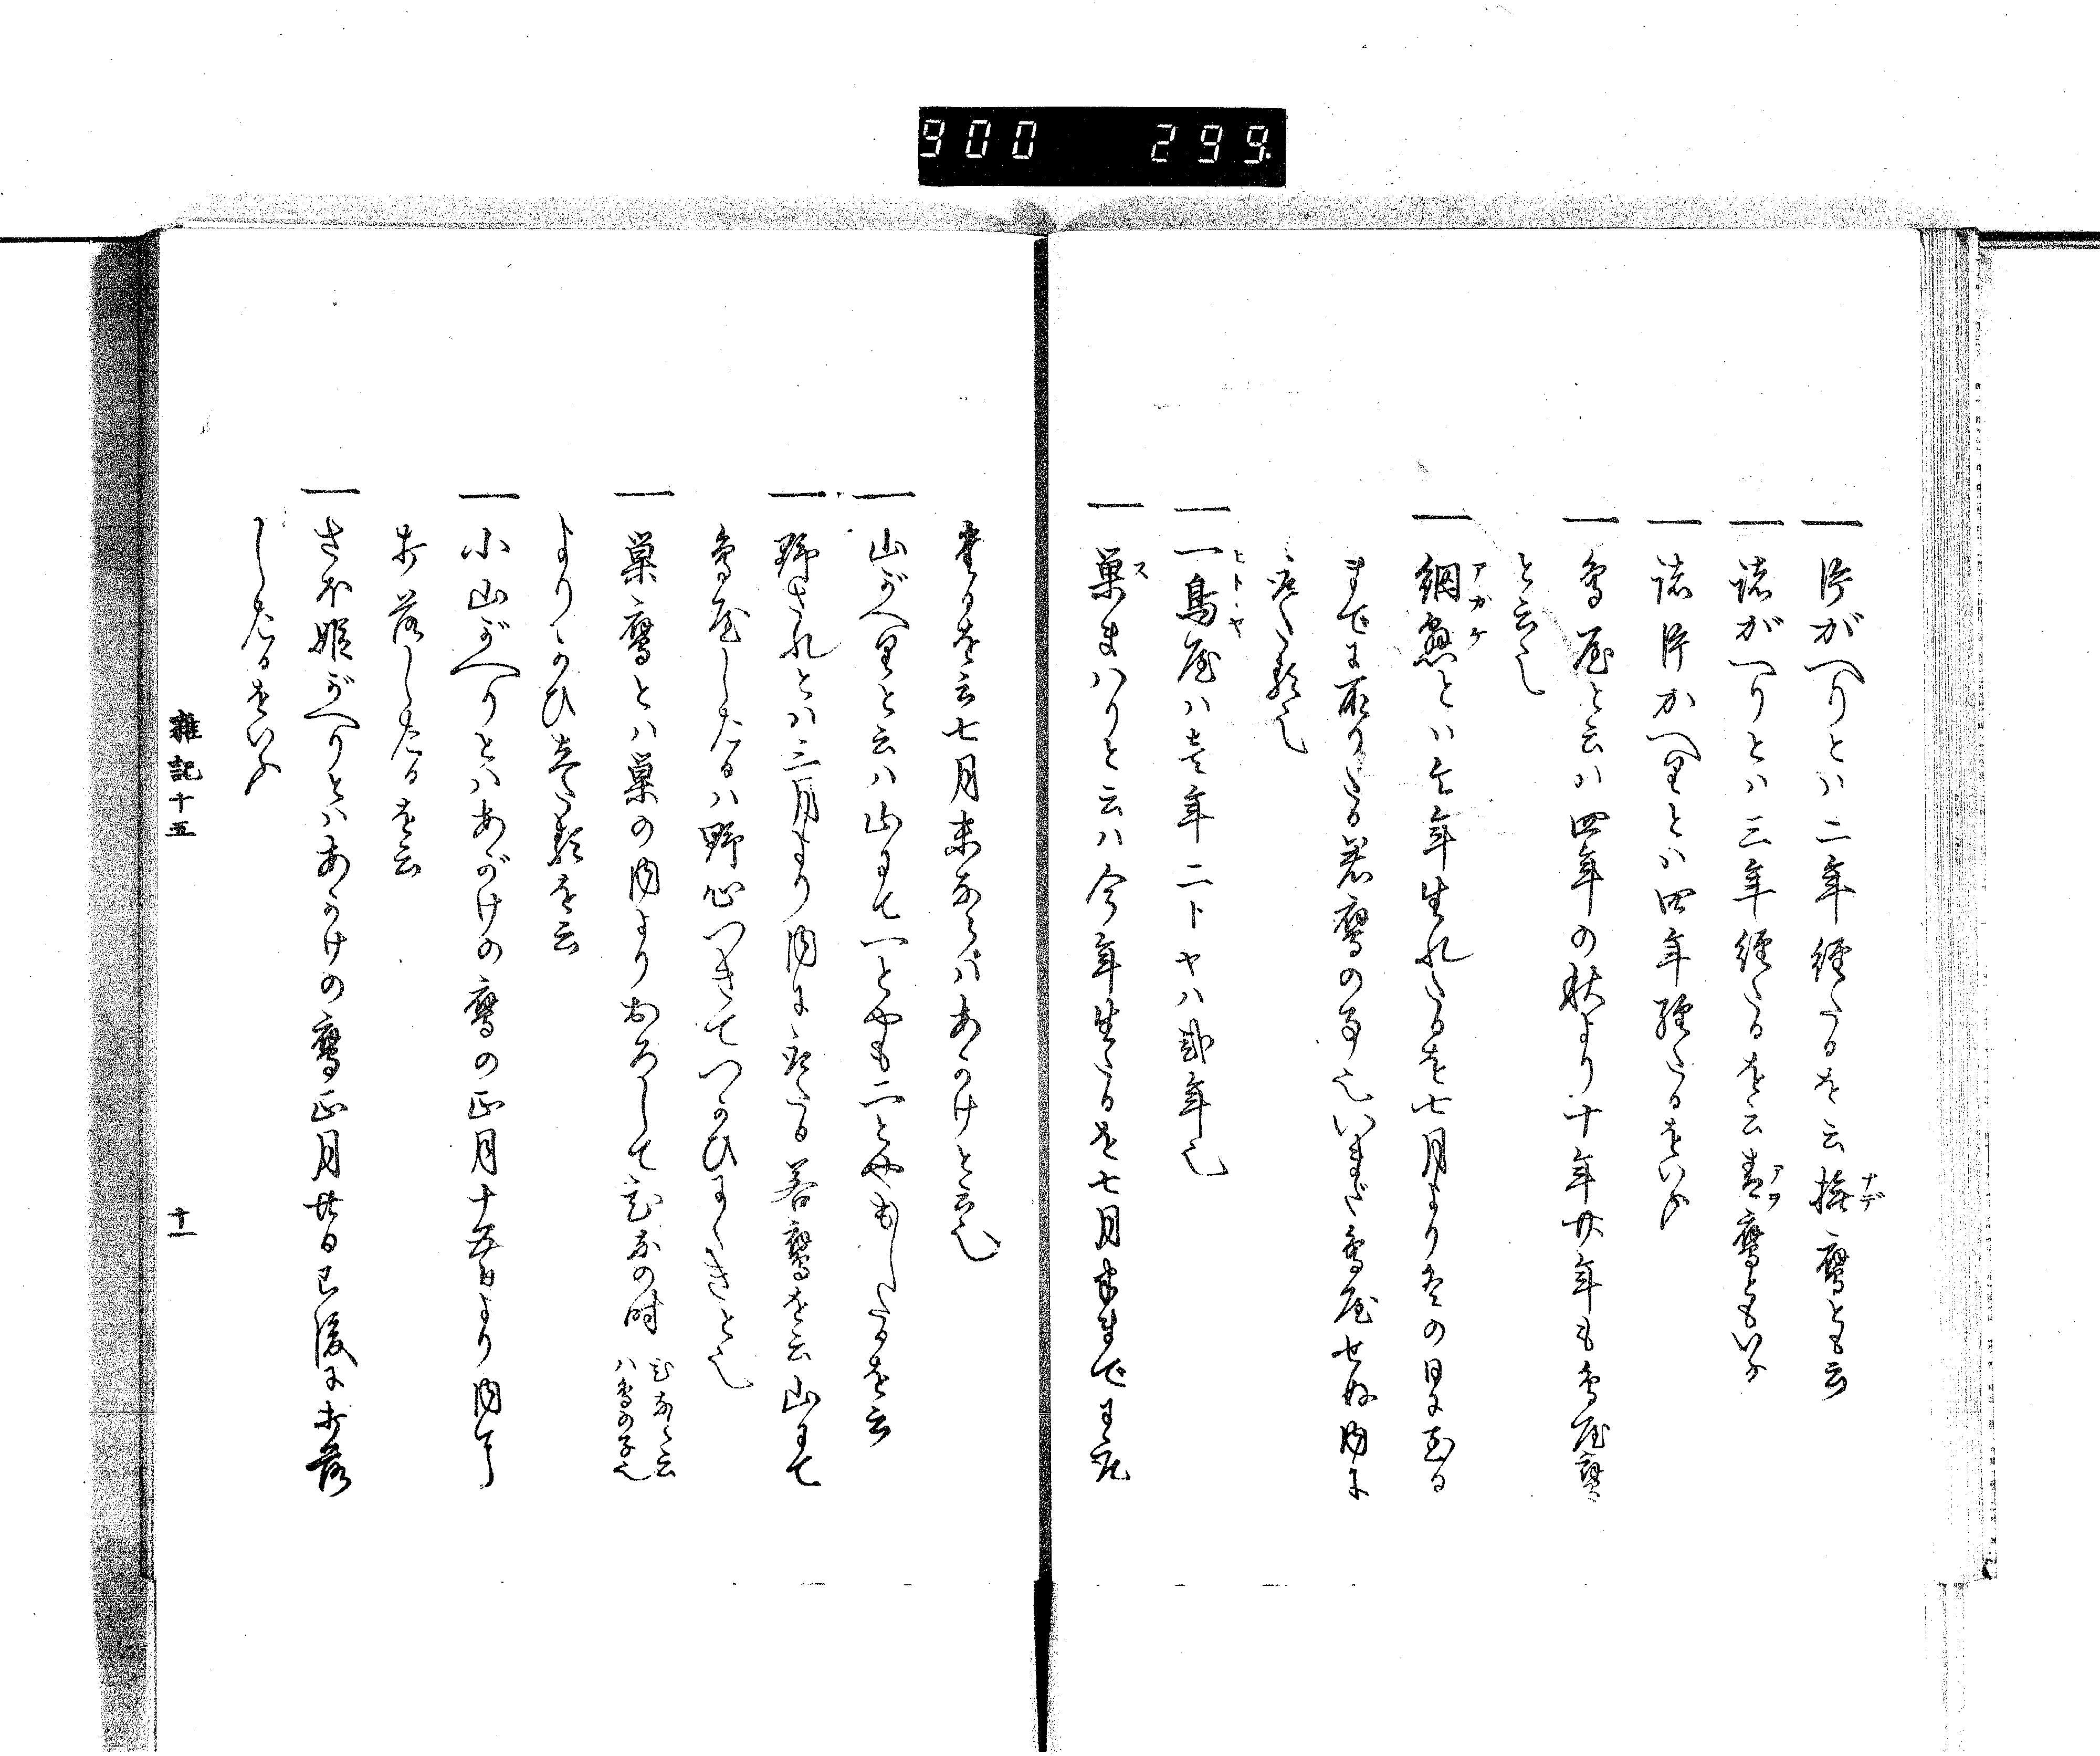 900 299
一 片がへりとハ二年経たるを云撫鷹とも云
ナデ
一 諸がへりとハ三年経たるを云青鷹ともいふ
アヲ
一 諸片かへりとハ四年経たるをいふ
一 鳥屋と云ハ四年の秋より十年廿年も鳥屋鷹
と云也
一 網懸とハ今年生れたるを七月より冬の日に至る
アガケ
までに取りたる若鷹の事也いまだ鳥屋せぬ内に
取たる也
一 一鳥屋ハ壱年二トヤハ弐年也
ヒトヤ
一 巣まハりと云ハ今年生たるを七月末までに取
ス
たるを云七月末ならバあがけと云也
一 山がへりと云ハ山にて一とやも二とやもしたるを云
一 野ざれとハ三月より内に取たる若鷹を云山にて
鳥屋したるハ野心つきてつかひにくきと也
一 巣鷹とハ巣の内よりおろしてひなの時
ひなと云
ハ鳥の子也
よりかひ立たるを云
一 小山がへりとハあがけの鷹の正月十五日より内に
毛落したるを云
一 さほ姫がへりとハあがけの鷹正月廿日已後に毛落
したるをいふ
雑記十五
十一